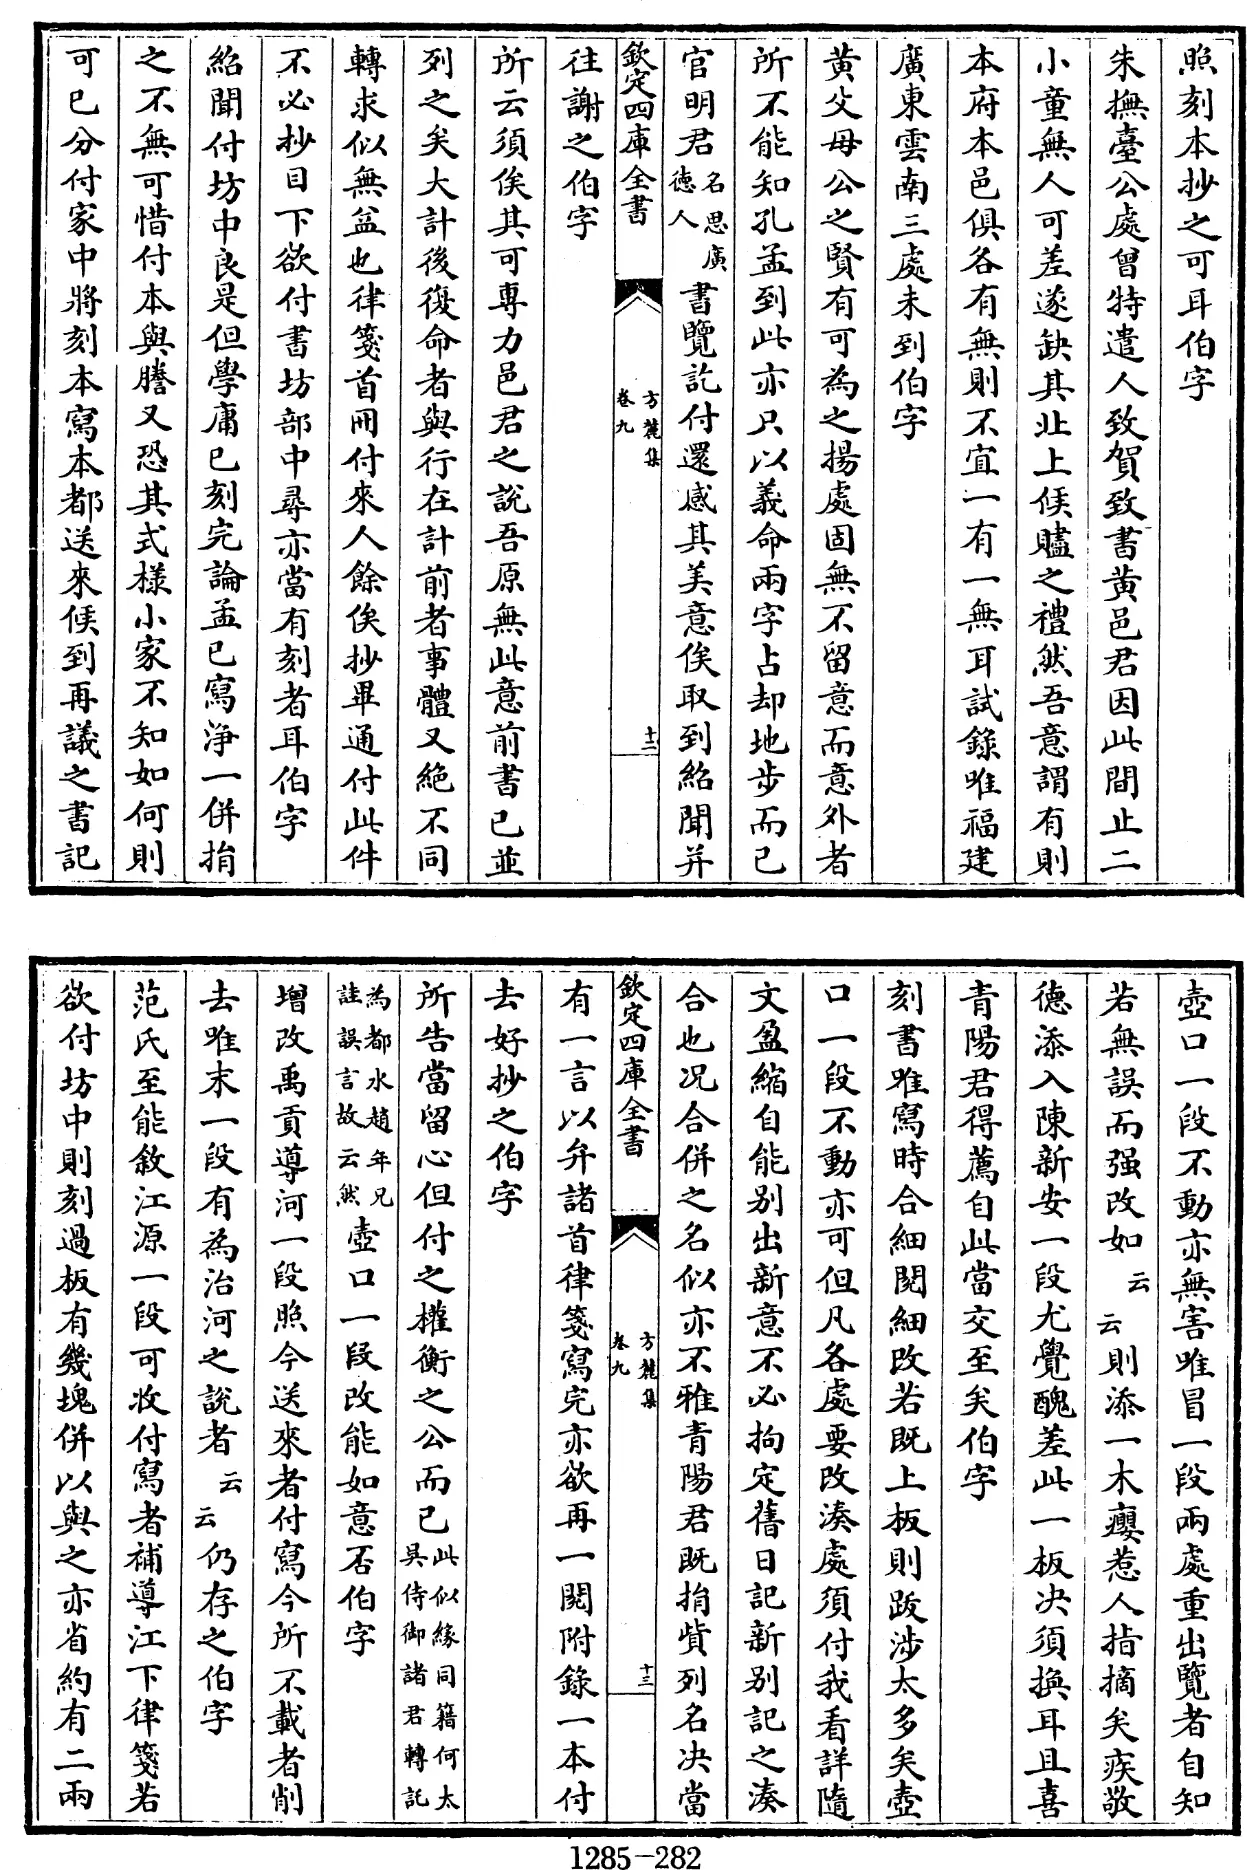 照刻本抄之可耳伯字
朱撫臺公處曾特遣人致賀致書黄邑君因此間止二
小童無人可差遂缺其北上候贐之禮然吾意謂有則
本府本邑俱各有無則不宜一有一無耳試錄唯福建
廣東雲南三處未到伯字
黄父母公之賢有可為之揚處固無不留意而意外者
所不能知孔孟到此亦只以義命兩字占却地步而已
官明君名思廣德人書覽訖付還感其美意俟取到紹聞并
欽定四庫全書
方麓集
卷九
十二
往謝之伯字
所云須俟其可專力邑君之說吾原無此意前書已並
列之矣大計後復命者與行在計前者事體又絶不同
轉求似無益也律箋首冊付來人餘俟抄畢通付此件
不必抄目下欲付書坊部中尋亦當有刻者耳伯字
紹聞付坊中良是但學庸已刻完論孟已寫淨一併捐
之不無可惜付本與謄又恐其式様小家不知如何則
可已分付家中將刻本寫本都送來候到再議之書記
壺口一段不動亦無害唯冒一段兩處重出覽者自知
若無誤而强改如云云則添一木癭惹人指摘矣疾敬
德添入陳新安一段尤覺醜差此一板决須換耳且喜
青陽君得薦自此當交至矣伯字
刻書唯寫時合細閱細改若既上板則跋涉太多矣壺
口一段不動亦可但凡各處要改湊處須付我看詳隨
文盈縮自能别出新意不必拘定舊日記新别記之湊
合也况合併之名似亦不雅青陽君既捐貲列名决當
欽定四庫全書
方麓集
卷九
十三
有一言以弁諸首律箋寫完亦欲再一閱附錄一本付
去好抄之伯字
所告當留心但付之權衡之公而已此似緣同籍何太吳侍御諸君轉託
為都水趙年兄註誤言故云然壺口一段改能如意否伯字
增改禹貢導河一段照今送來者付寫今所不載者削
去唯末一段有為治河之說者云云仍存之伯字
范氏至能敘江源一段可收付寫者補導江下律箋若
欲付坊中則刻過板有幾塊併以與之亦省約有二兩
1285-282